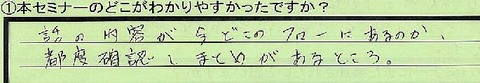 ①本セミナーのどこがわかりやすかったですか？
話の内容が今どこのフローにあるのか、
都度確認しまとめがあるところ。